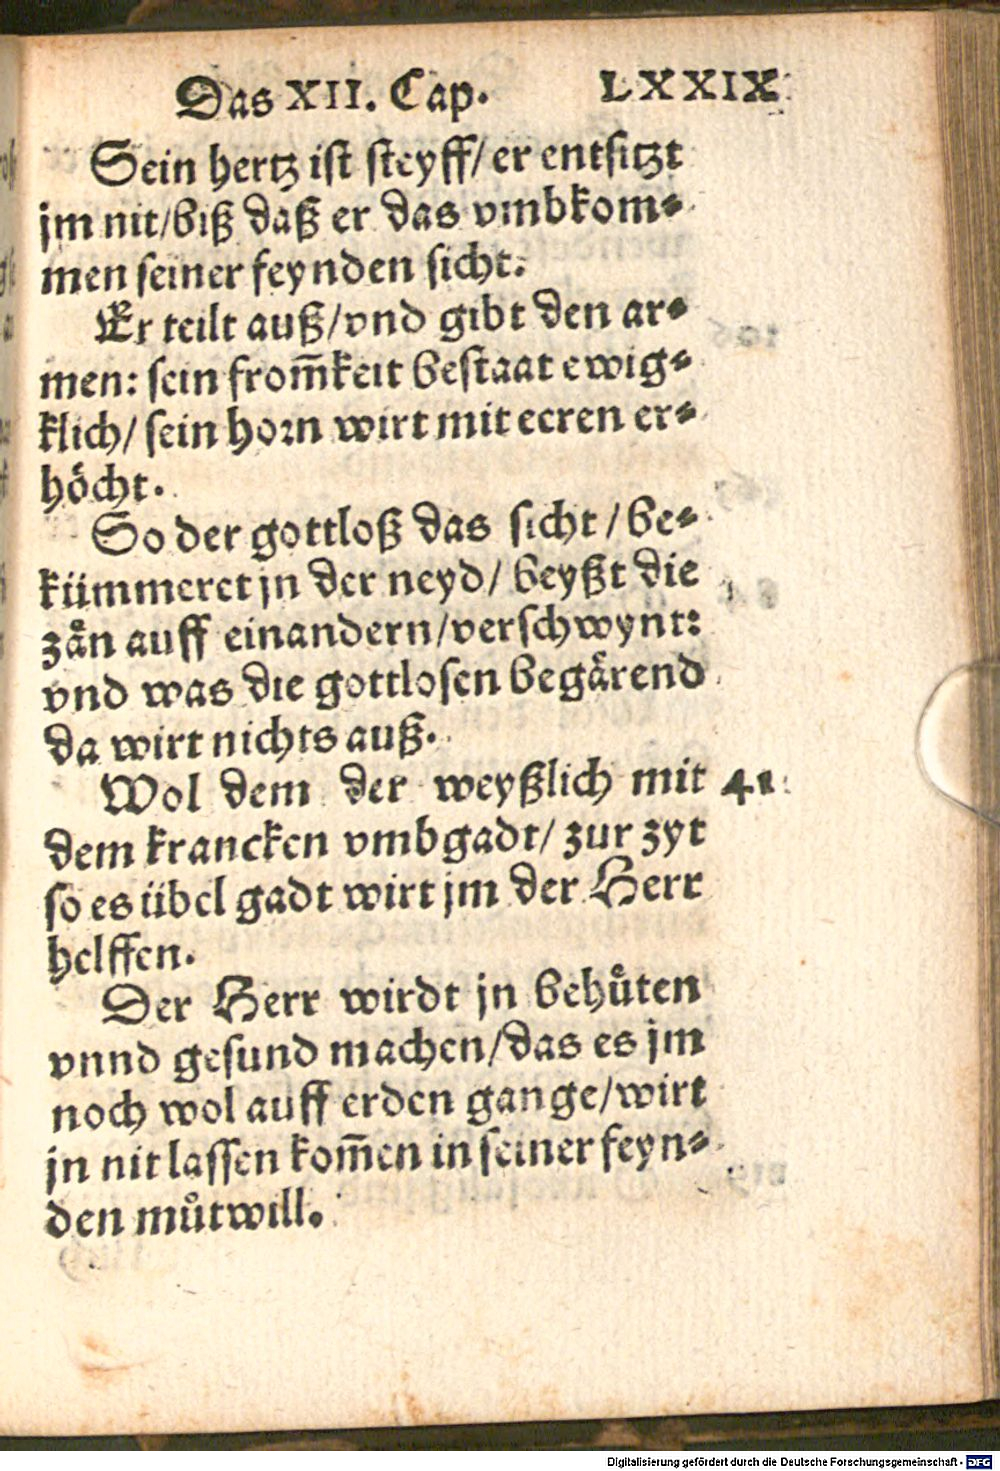 Das XII. Cap. LXXIX
Sein hertz ist steyff/ er entsitzt
jm nit/ biß daß er das vmbkom⸗
men seiner feynden sicht.
Er teilt auß/ vnd gibt den ar⸗
men: sein from̃keit bestaat ewig⸗
klich/ sein horn wirt mit eeren er⸗
höcht.
So der gottloß das sicht / be⸗
kümmeret jn der neyd/ beyßt die
zaͤn auff einandern/ verschwynt:
vnd was die gottlosen begaͤrend
da wirt nichts auß.
Wol dem der weyßlich mit 41
dem krancken vmbgadt/ zur zyt
so es übel gadt wirt jm der Herr
helffen.
Der Herr wirdt jn behuͤten
vnnd gesund machen/ das es jm
noch wol auff erden gange/ wirt
jn nit lassen kom̃en in seiner feyn⸗
den muͦtwill.
Digitalisierung gefördert durch die Deutsche Forschungsgemeinschaft - DFG